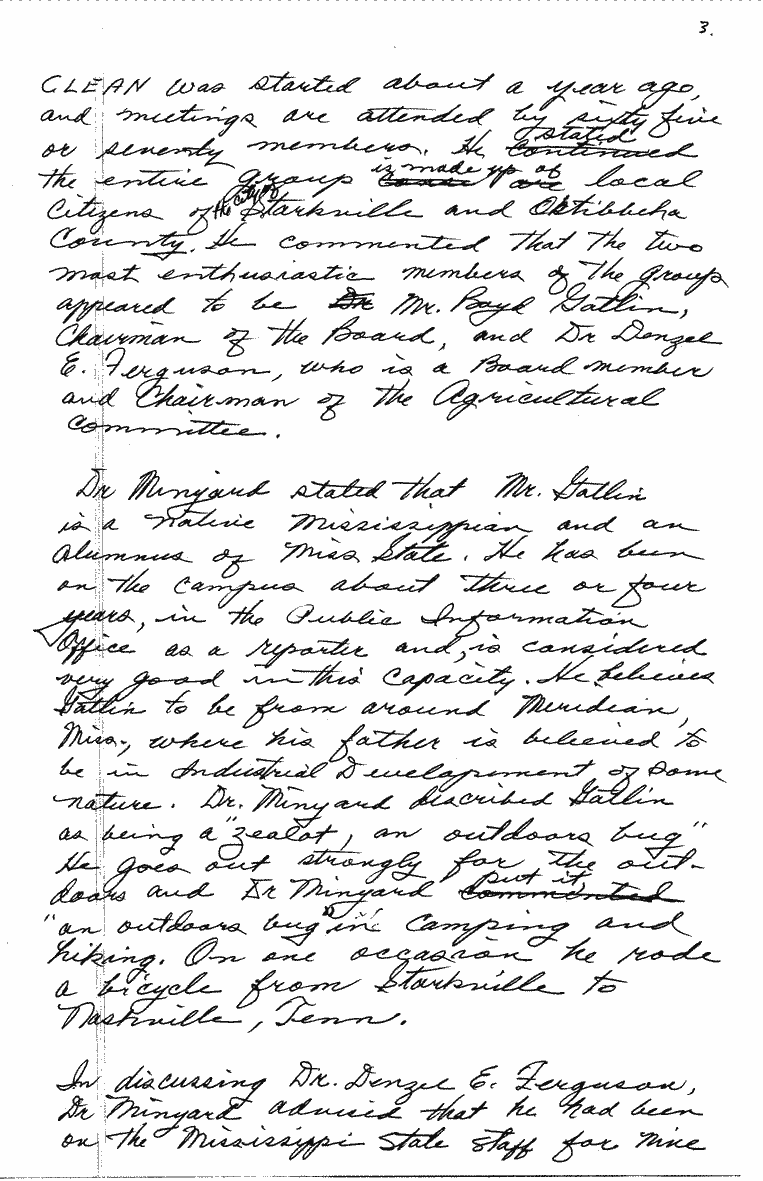 3.
CLEAN was started about a year ago,
and meetings are attended by sixty five
or seventy members. He stated
the entire group is made up of local
Citizens of the city of Starkville and Oktibbeha
County. He commented that the two
most enthusiastic members of the group
appeared to be Dr Mr. Boyd Gatlin,
Chairman of the Board, and Dr Denzel
E. Ferguson, who is a Board member
and Chairman of the Agricultural
Committee.
Dr Minyard stated that Mr. Gatlin
is a native Mississippian and an
alumnus of Miss State. He has been
on the campus about three or four
years, in the Public Information
Office as a reporter and, is considered
very good in this capacity. He believes
Gatlin to be from around Meridian,
Miss., where his father is believed to
be in Industrial Developement of some
nature. Dr. Minyard discribed Gatlin
as being a "zealot, an outdoors bug"
He goes out strongly for the out-
doors and Dr Minyard commented put it,
"an outdoors bug" in camping and
hiking. On one occasion he rode
a bicycle from Starkville to
Nashville, Tenn.
In discussing Dr. Denzel E. Ferguson,
Dr Minyard advised that he had been
on the Mississippi State staff for nine